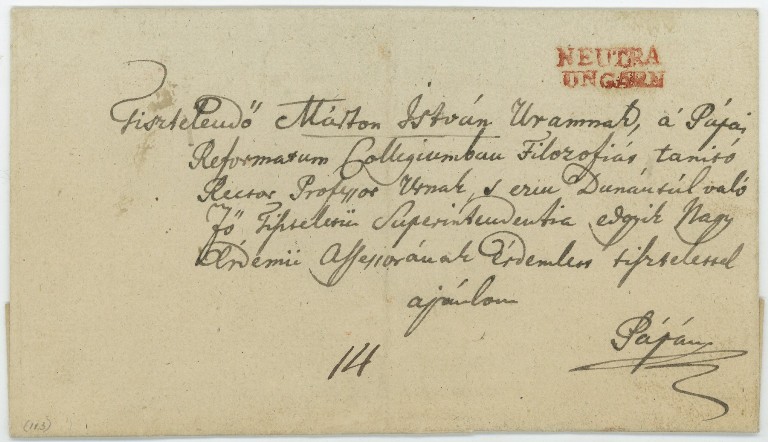 NEUTRA
UNGARN
Tisztelendő Márton István Uramnak, á Pápai
Reformatum Collegiumban Filozofiát tanító
Rector Professor Urnak, s ezen Dunántúl való
Fő Tiszteletü Superintendentia edgyik Nagy
Érdemü Assessorának Érdemless tisztelessel
ajánlom
Pápán
14
(113)